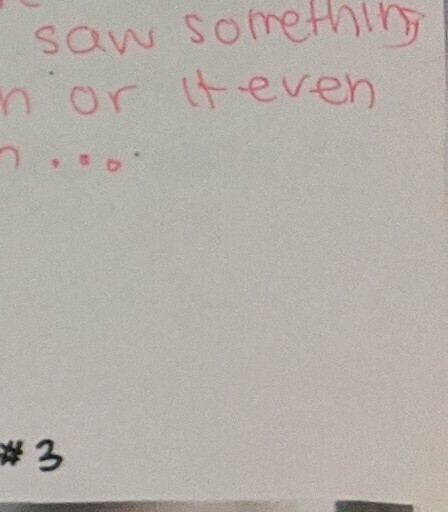 saw something
n or it even
n....
#3